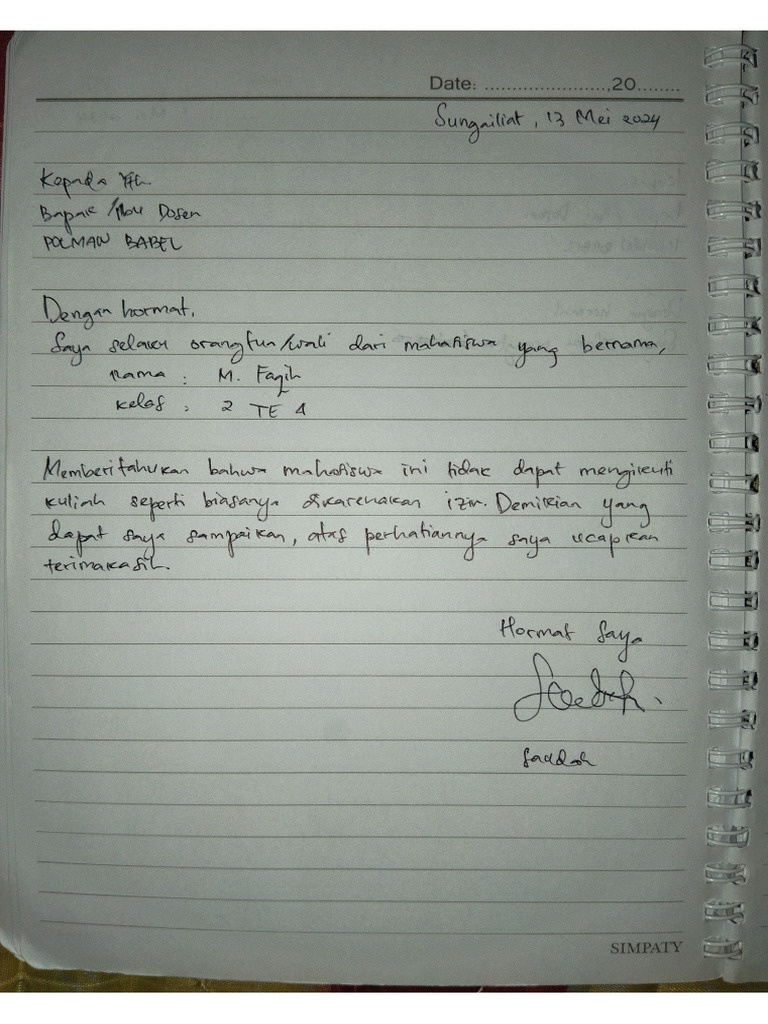 Date: ........................,20........
Sungailiat, 13 Mei 2024
Kepada Yth.
Bapak/Ibu Dosen
POLMAN BABEL
Dengan hormat,
Saya selaku orangtua/wali dari mahasiswa yang bernama,
nama : M. Faqih
kelas : 2 TE A
Memberitahukan bahwa mahasiswa ini tidak dapat mengikuti
kuliah seperti biasanya dikarenakan izin. Demikian yang
dapat saya sampaikan, atas perhatiannya saya ucapkan
terimakasih.
Hormat Saya
Saadah
SIMPATY